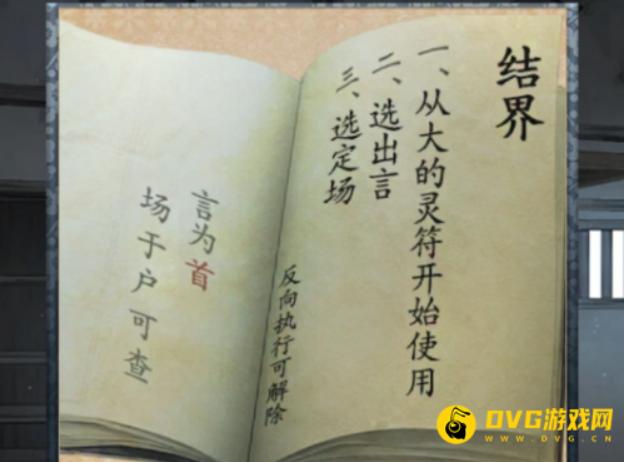 结界
一、从大的灵符开始使用
二、选出言
三、选定场
反向执行可解除
言为首
场于户可查
DVG游戏网
WWW.DVG.CN